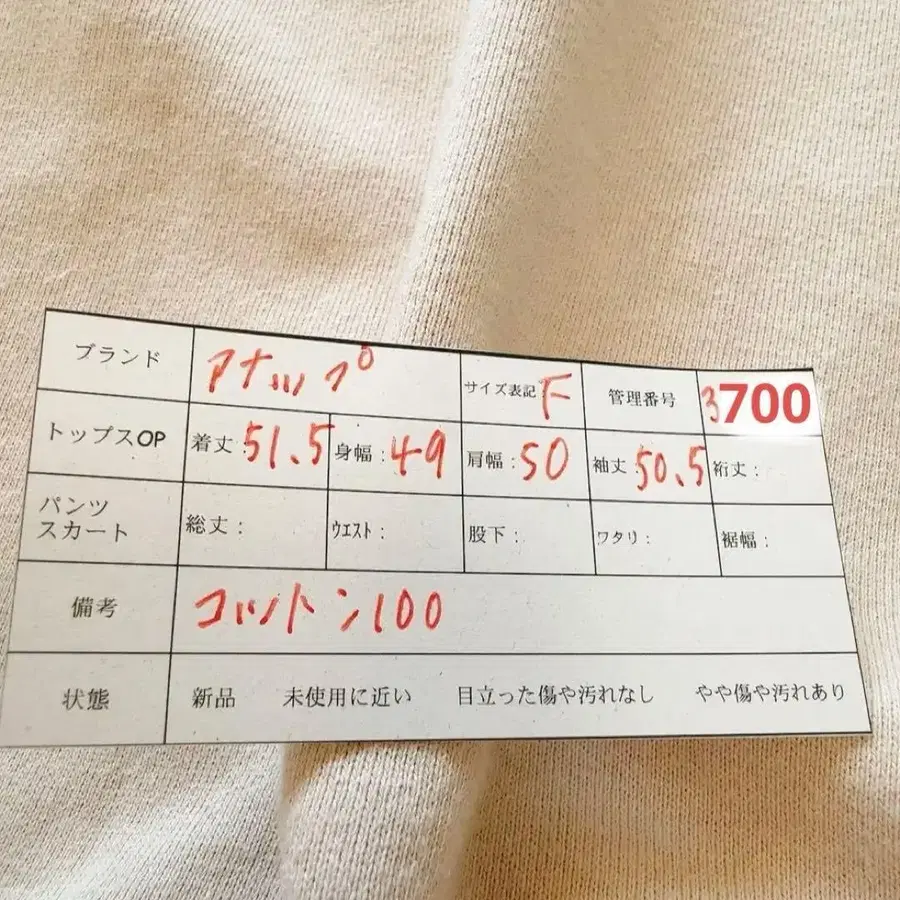 ブランド アナップ サイズ表記: F 管理番号 3700
トップスOP 着丈: 51.5 身幅: 49 肩幅: 50 袖丈: 50.5 裄丈:
パンツ
スカート 総丈: ウエスト: 股下: ワタリ: 裾幅:
備考 コットン100
状態 新品 未使用に近い 目立った傷や汚れなし やや傷や汚れあり